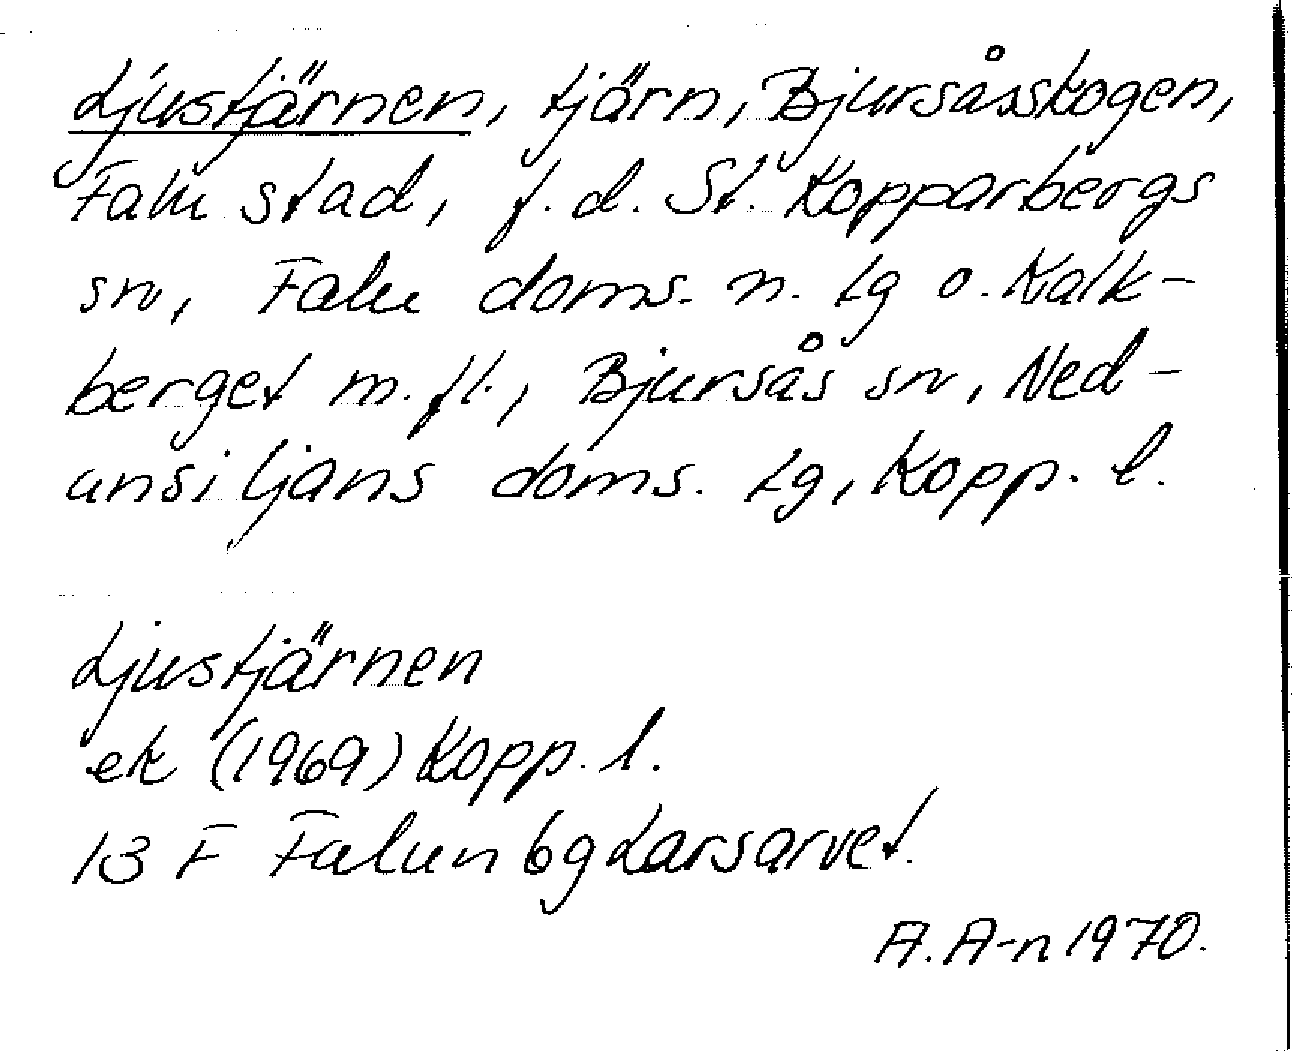 Ljustjärnen, tjärn, Bjursåsskogen,
Falu stad, f.d. St. Kopparbergs
sn, Falu doms. n. tg o. Kalk-
berget m.fl., Bjursås sn, Ned-
ansiljans doms. tg, Kopp. l.
Ljustjärnen
ek (1969) Kopp. l.
13 F Falun 6g Larsarvet.
A. A-n 1970.